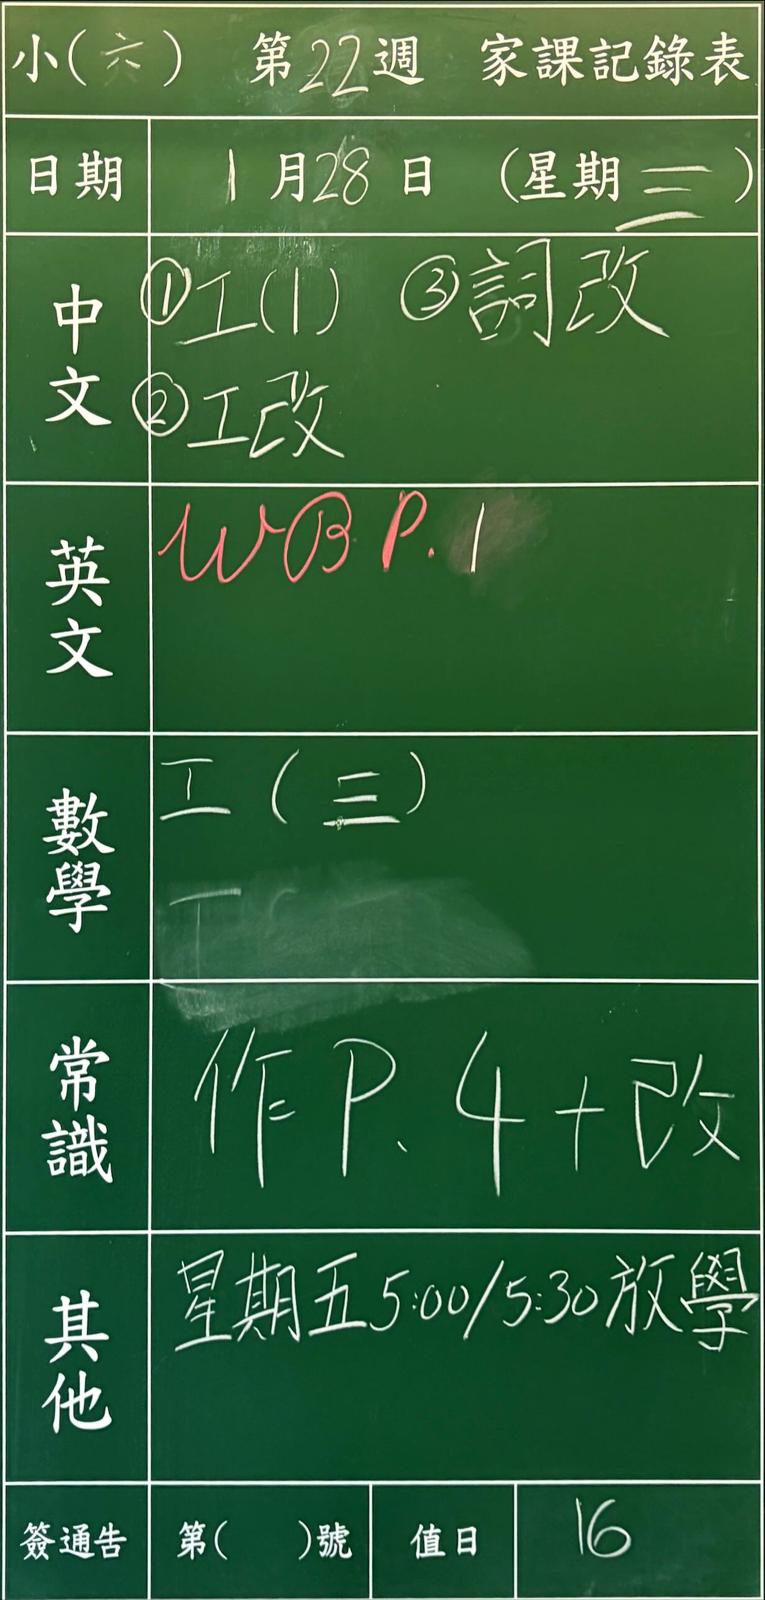 小(六) 第22週 家課記錄表
日期 1月28日 (星期三)
中文 ①工(1) ③詞改
②工改
英文 WB P. 1
數學 工(三)
常識 作P. 4+改
其他 星期五5:00/5:30放學
簽通告 第( )號 值日 16